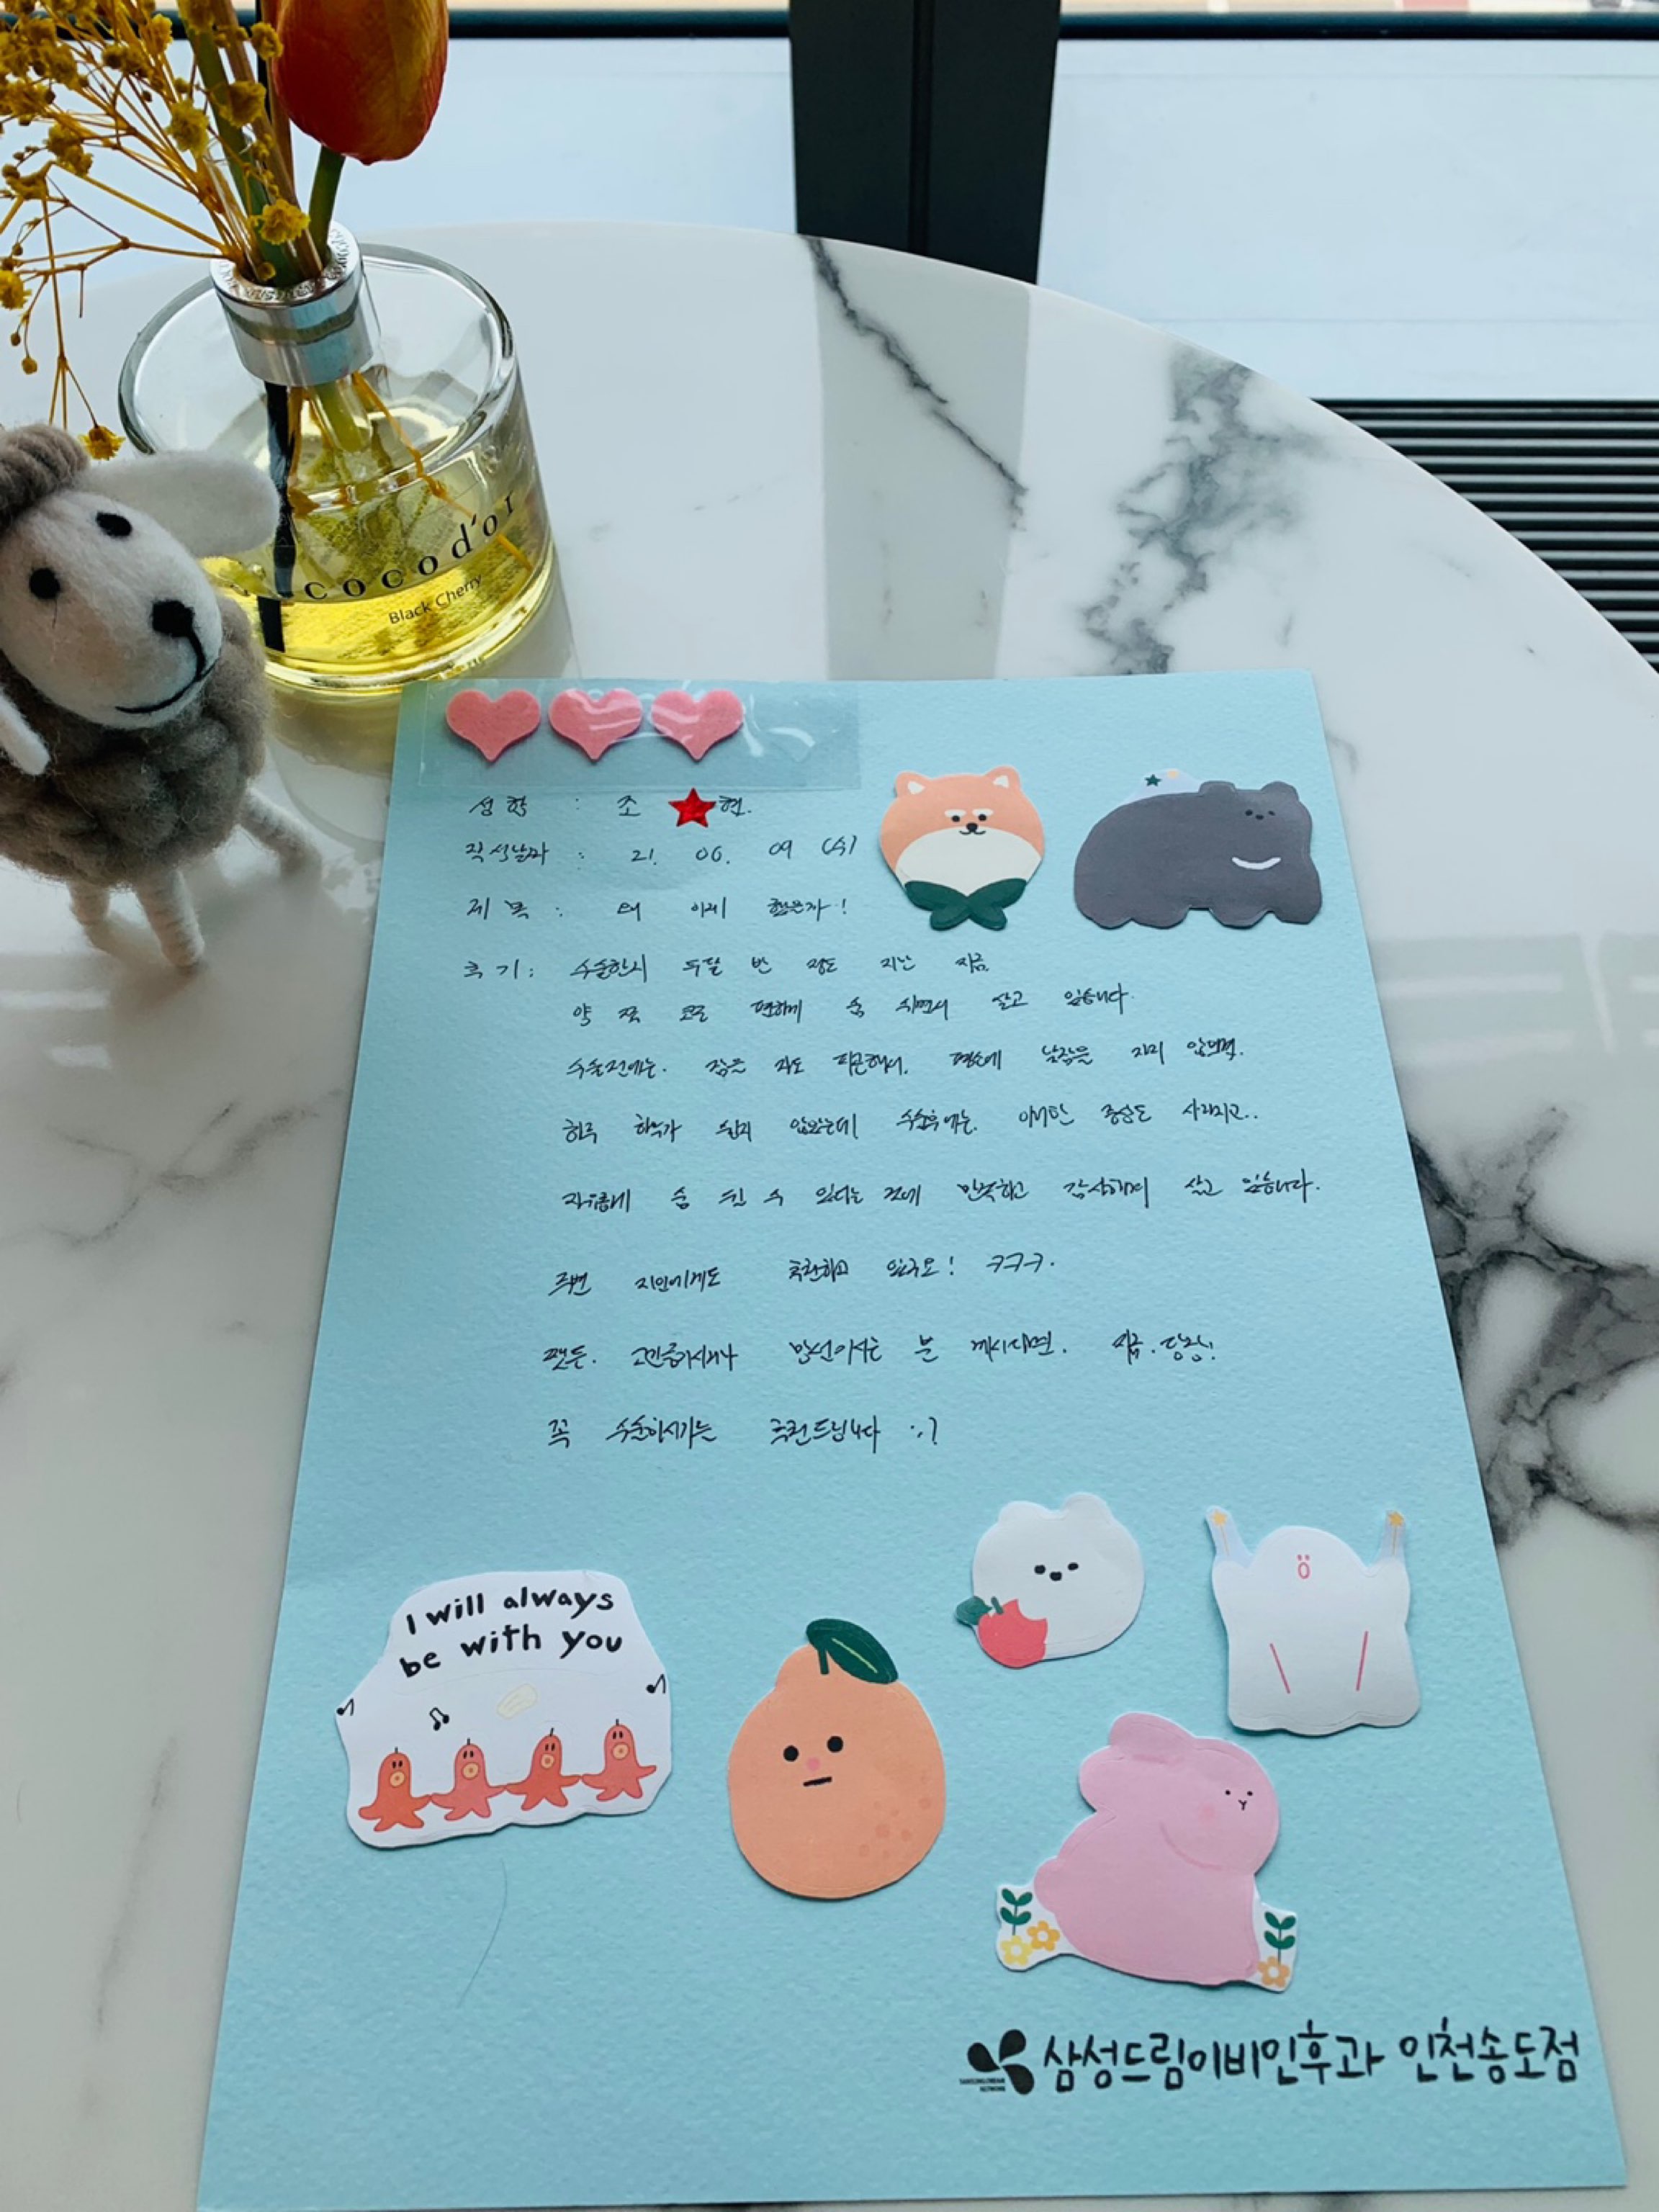 cocod'or
Black Cherry
성함 : 조 현.
작성날짜 : 21. 06. 09 (수)
제목 : 왜 이제 했을까!
후기 : 수술한지 두달 반 정도 지난 지금.
약 코로 편하게 숨 쉬면서 살고 있습니다.
수술전에는. 잠을 자도 피곤해서, 평소에 낮잠을 자지 않으면.
하루 하루가 쉽지 않았는데! 수술후에는. 이러한 증상도 사라지고..
자유롭게 숨 쉴 수 있다는 것에 만족하고 감사하며 살고 있습니다.
주변 지인에게도 추천하고 있구요! ㅋㅋㅋ.
쨌든. 고민중이시거나 망설이시는 분 계시다면. 지금.당장!
꼭 수술하시기는 추천드립니다 :)
I will always
be with you
삼성드림이비인후과 인천송도점